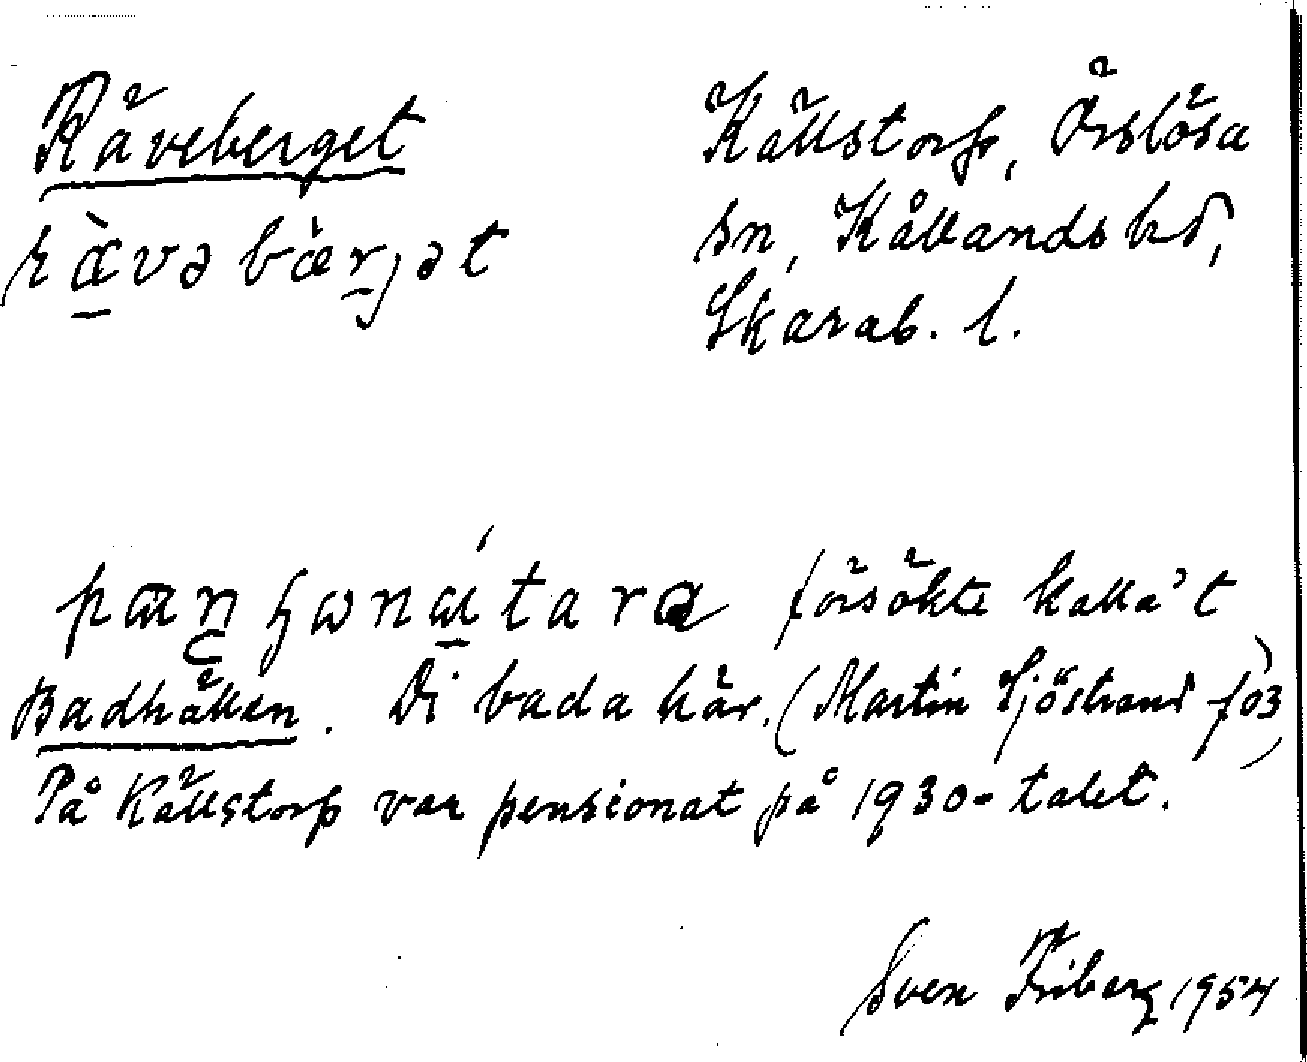 Räveberget
Källstorp, Örslösa
rä̀vəbæ̀rjət
sn, Kållands hd,
Skarab. l.
försökte kalla't
Badhällen. Di bada här. (Martin Sjöstrand f. 03)
På Källstorp var pensionat på 1930-talet.
Sven Friberg 1954